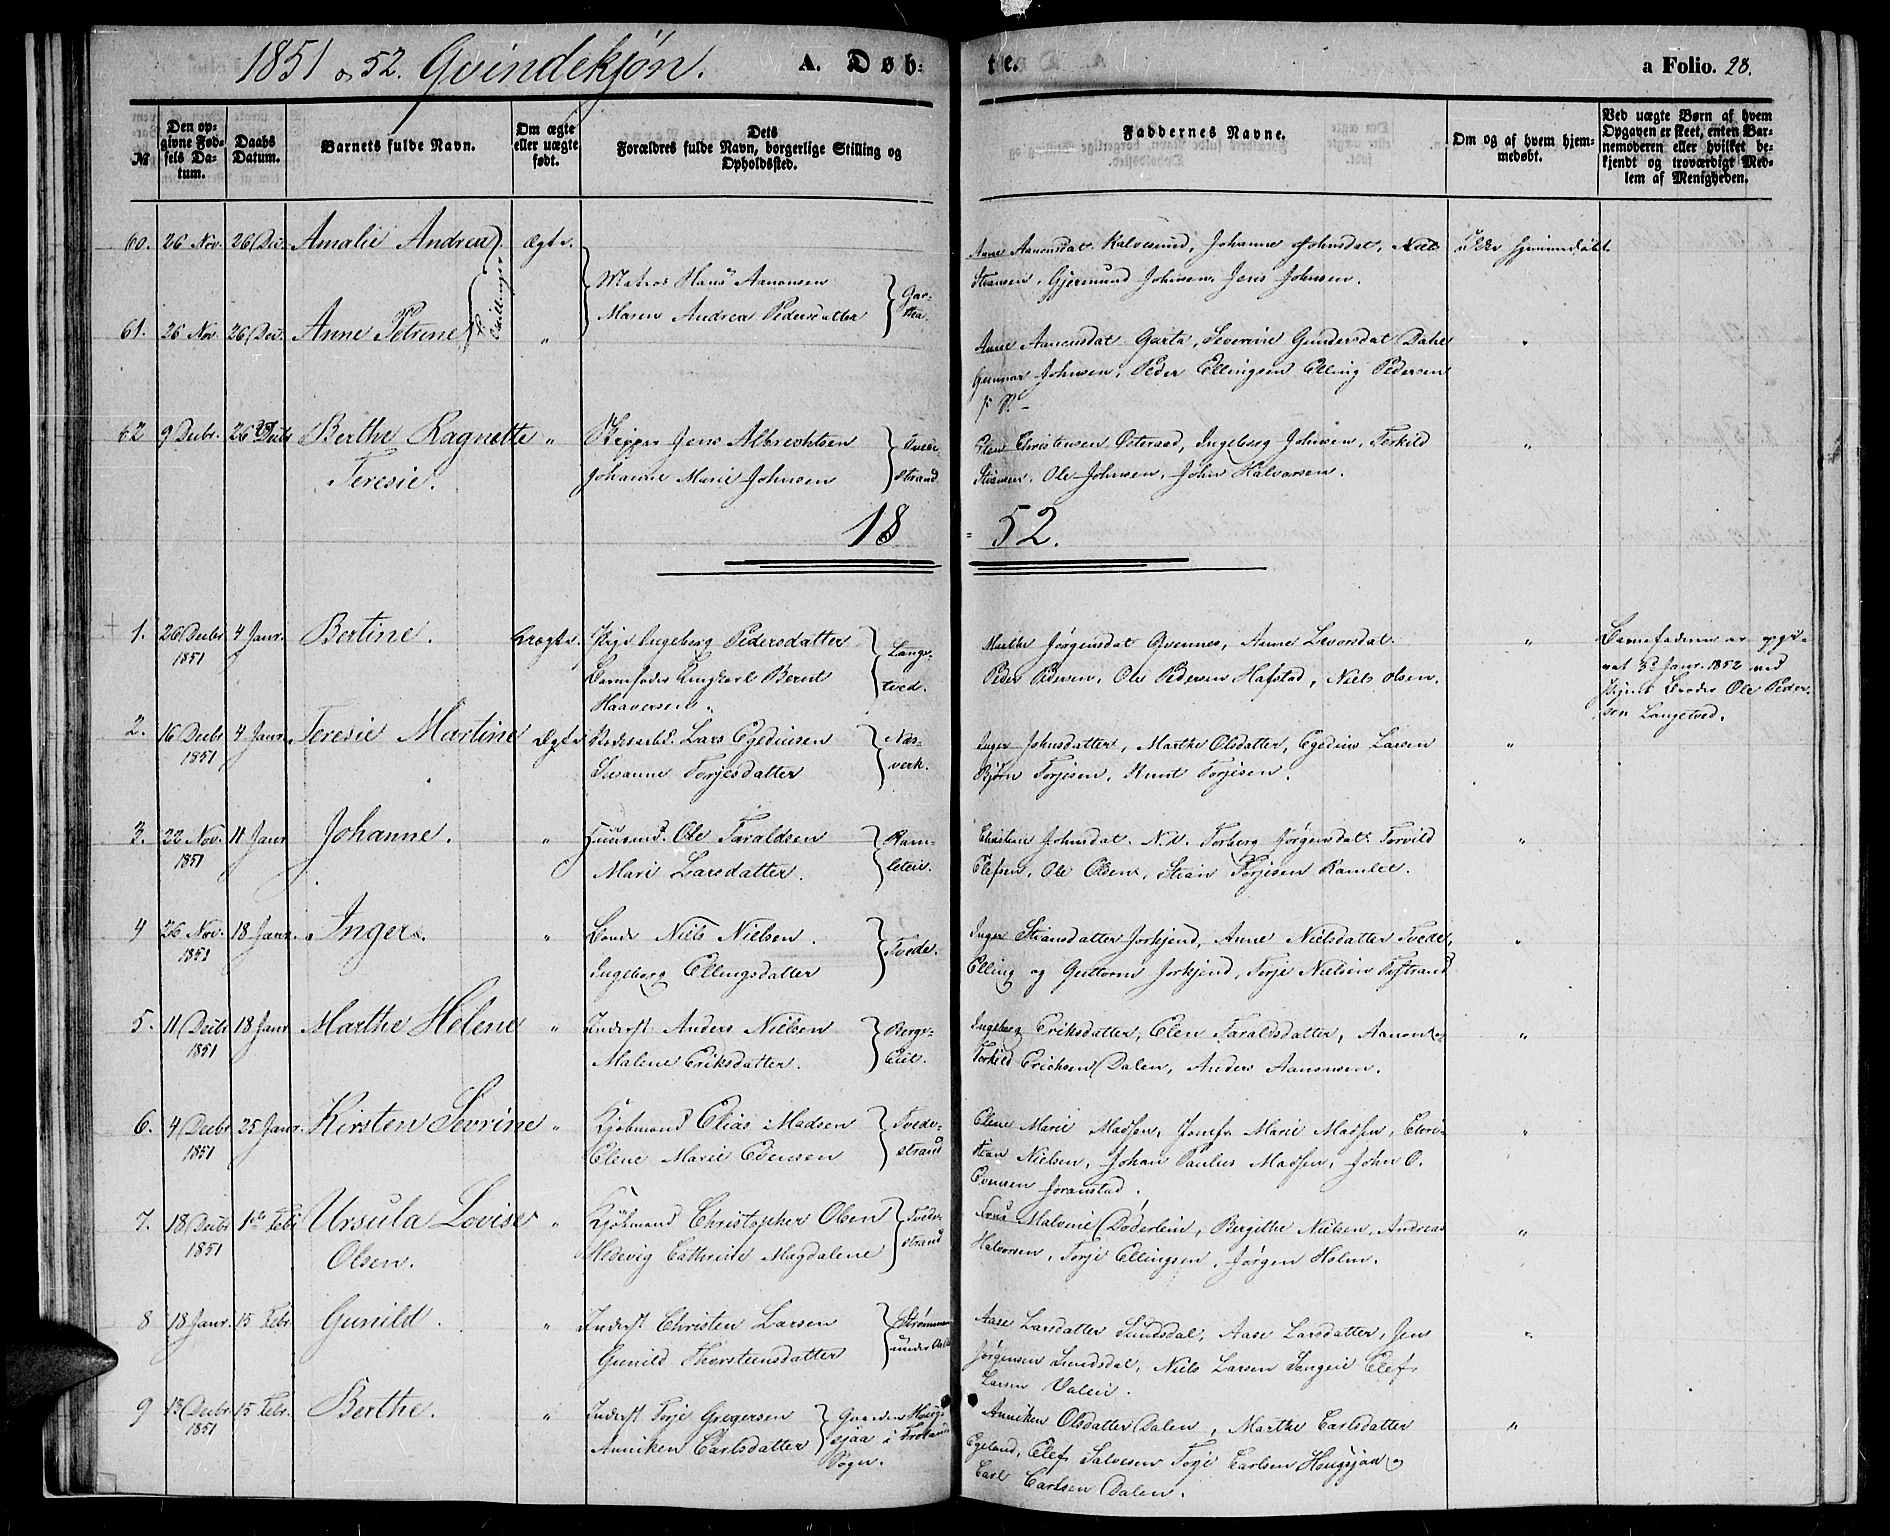 1851 & 52. Qvindekjön. A. Døb-te. a Folio. 28.
No
Den op-
givne Fød-
sels Da-
tum.
Daabs
Datum.
Barnets fulde Navn.
Om ægte
eller uægte
født.
Dets
Forældres fulde Navn, borgerlige Stilling og
Opholdssted.
Faddernes Navne.
Om og af hvem hjem-
medøbt.
Ved uægte Børn af hvem
Opgaven er skeet, enten Bar-
nemoderen eller hvilket be-
kjendt og troværdigt Med-
lem af Menigheden.
60. 26 Nov. 26 Dec. Amalie Andrea Ægte.
Tvillinger
Matros Hans Aanonsen
Maren Andrea Pedersdatter
Gar-
tha.
Anne Aanonsdat Kalvesund, Johanne Johnsdat, Niels
Stiansen, Gjermund Johnsen, Jens Johnsen.
ikke hjemmedøbt
61. 26 Nov. 26 Dec. Anne Petrine "
Anne Aanonsdat Garta, Severine Gundersdat Dahl
Gunnar Johnsen, Peder Ellingsen Elling Pedersen
"
62 9 Decbr. 26 Decbr Berthe Ragnette
Teresie.
"
Skipper Jens Albrechtsen
Johanne Marie Johnsen
Tvede-
strand
Elen Christensen Østeraad, Ingeborg Johnsen, Terkild
Stiansen, Ole Johnsen, John Halvorsen.
"
18 52.
1. 26 Decbr. 4 Janr. Bertine. Uægte.
1851
Pige Ingeborg Pedersdatter
Barnefader Ungkarl Bernt
Haaversen.
Lange-
tved.
Marthe Jörgensdat Qvennes, Anne
Peder Pedersen, Ole Pedersen Hafstad, Niels Olsen.
"
Barnefaderen er opgi-
vet 3d Janr. 1852 ved
Pigens Broder Ole Peder-
sen Langetved.
2. 16 Decbr 4 Janr. Teresie Martine Ægte
1851
Lars Egediusen
Susanne Torjesdatter
Næs-
verk.
Inger Johnsdatter, Marthe Olsdatter, Egedius Larsen
Björn Torjesen, Knut Torjesen.
"
3. 22 Nov. 11 Janr Johanne. "
1851
Huusmd. Ole Taraldsen
Mari Larsdatter.
Ram-
leteie.
Christine Johnsdat. N. N. Torberg Jörgensdat. Torvild
Elefsen, Ole Olsen, Stian Torjesen Ramlet.
"
4 26 Nov. 18 Janr. Inger. "
1851
Bonde Niels Nielsen.
Ingeborg Ellingsdatter
Tvede.
Inger Stiansdatter Jorkjend, Anne Nielsdatter Tvede,
Elling og Guttorm Jorkjend, Torje Nielsen Tvstrand
"
5. 11 Decbr 18 Janr Marthe Helene "
1851
Inderst Anders Nielsen
Malene Eriksdatter.
Berge-
Eiet.
Ingeborg Eriksdatter, Elen Taraldsdatter, Aanon og
Torkild Erichsen Dalen, Anders Aanonsen.
"
6. 4 Decbr 25 Janr. Kirsten Sevrine "
1851
Kjöbmand Elias Madsen
Elene Marie Evensen
Tvede-
strand
Elene Marie Madsen, Jomfr. Marie Madsen, Chri-
stian Nielsen, Johan Paulus Madsen, John O.
Evensen Joranstad.
"
7. 18 Decbr 1ste Febr Ursula Lovise
1851
Olsen.
"
Kjöbmand Christopher Olsen
Hedevig Cathrine Magdalene
Tvede-
strand
Frue Malvine Döderlein, Bergithe Nielsen, Andreas
Halvorsen, Torje Ellingsen, Jörgen Holm.
"
8 18 Janr. 15 Febr. Gunild. "
Inderst Christen Larsen
Gunild Thorsteinsdatter
Strømmen
under
Aase Larsdatter Sundsdal, Aase Larsdatter, Jens
Jörgensen Sundsdal, Niels Larsen Songeie Elef
Larsen Valeie.
"
9 13 Decbr 15 Febr. Berthe. "
1851
Inderst Torje Gregersen
Anniken Carlsdatter
Gaarden Houg-
sjaa i Froland
Sogn.
Anniken Olsdatter Dalen, Marthe Carlsdatter
Egeland, Elef Salvesen Torje Carlsen Hougsjaa og
Carl Carlsen Dalen.
"